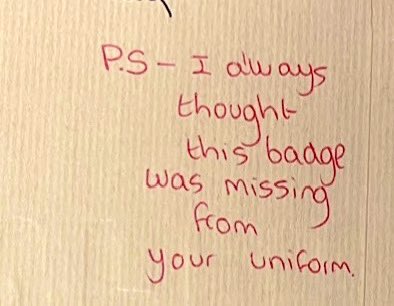 P.S – I always
thought
this badge
was missing
from
your uniform.